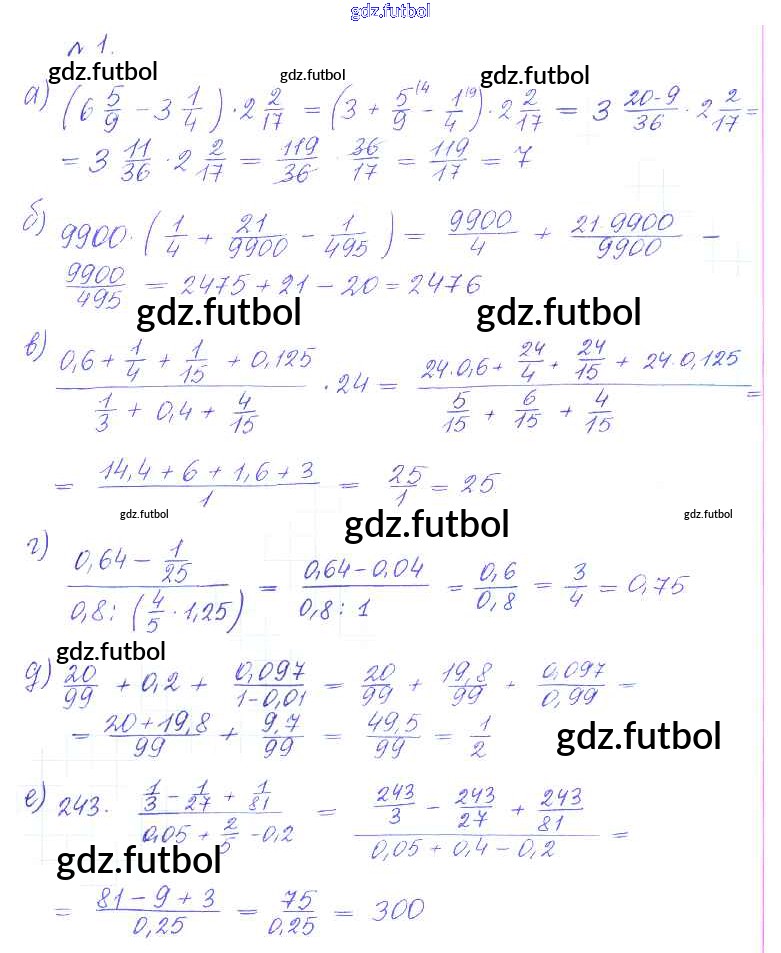 gdz.futbol
№ 1.
gdz.futbol gdz.futbol gdz.futbol
а) (6 5/9 − 3 1/4) · 2 2/17 = (3 + 5/9^(4 − 1/4^(9) · 2 2/17 = 3 (20-9)/36 · 2 2/17 =
= 3 11/36 · 2 2/17 = 119/36 · 36/17 = 119/17 = 7
б) 9900 · (1/4 + 21/9900 − 1/495) = 9900/4 + (21·9900)/9900 −
9900/495 = 2475 + 21 − 20 = 2476
gdz.futbol gdz.futbol
в) (0,6 + 1/4 + 1/15 + 0,125)/(1/3 + 0,4 + 4/15) · 24 = (24·0,6 + 24/4 + 24/15 + 24·0,125)/(5/15 + 6/15 + 4/15) =
= (14,4 + 6 + 1,6 + 3)/1 = 25/1 = 25
gdz.futbol gdz.futbol gdz.futbol
г) (0,64 − 1/25)/(0,8 : (4/5 · 1,25)) = (0,64 − 0,04)/(0,8 : 1) = 0,6/0,8 = 3/4 = 0,75
gdz.futbol
д) 20/99 + 0,2 + 0,097/(1-0,01) = 20/99 + 19,8/99 + 0,097/0,99 =
= (20+19,8)/99 + 9,7/99 = 49,5/99 = 1/2
gdz.futbol
е) 243 · (1/3 − 1/27 + 1/81)/(0,05 + 2/5 − 0,2) = (243/3 − 243/27 + 243/81)/(0,05 + 0,4 − 0,2) =
gdz.futbol
= (81 − 9 + 3)/0,25 = 75/0,25 = 300